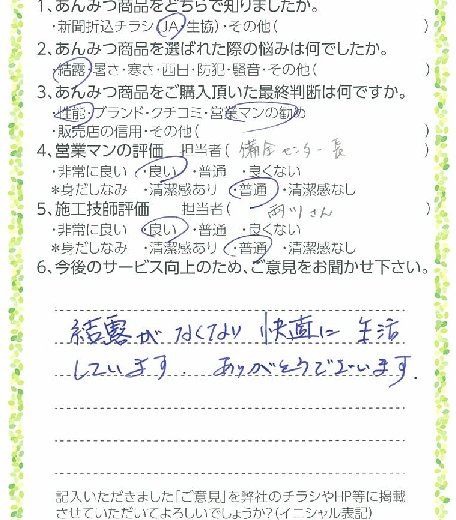 1、あんみつ商品をどちらで知りましたか。
・新聞折込チラシ(JA・生協)・その他( )
2、あんみつ商品を選ばれた際の悩みは何でしたか。
・結露・暑さ・寒さ・西日・防犯・騒音・その他( )
3、あんみつ商品をご購入頂いた最終判断は何ですか。
・性能・ブランド・クチコミ・営業マンの勧め
・販売店の信用・その他( )
4、営業マンの評価 担当者( センター長 )
・非常に良い ・良い ・普通 ・良くない
*身だしなみ ・清潔感あり ・普通 ・清潔感なし
5、施工技師評価 担当者( 西川さん )
・非常に良い ・良い ・普通 ・良くない
*身だしなみ ・清潔感あり ・普通 ・清潔感なし
6、今後のサービス向上のため、ご意見をお聞かせ下さい。
結露がなくなり 快適に 生活
しています. ありがとうございます.
記入いただきました「ご意見」を弊社のチラシやHP等に掲載
させていただいてよろしいでしょうか?(イニシャル表記)